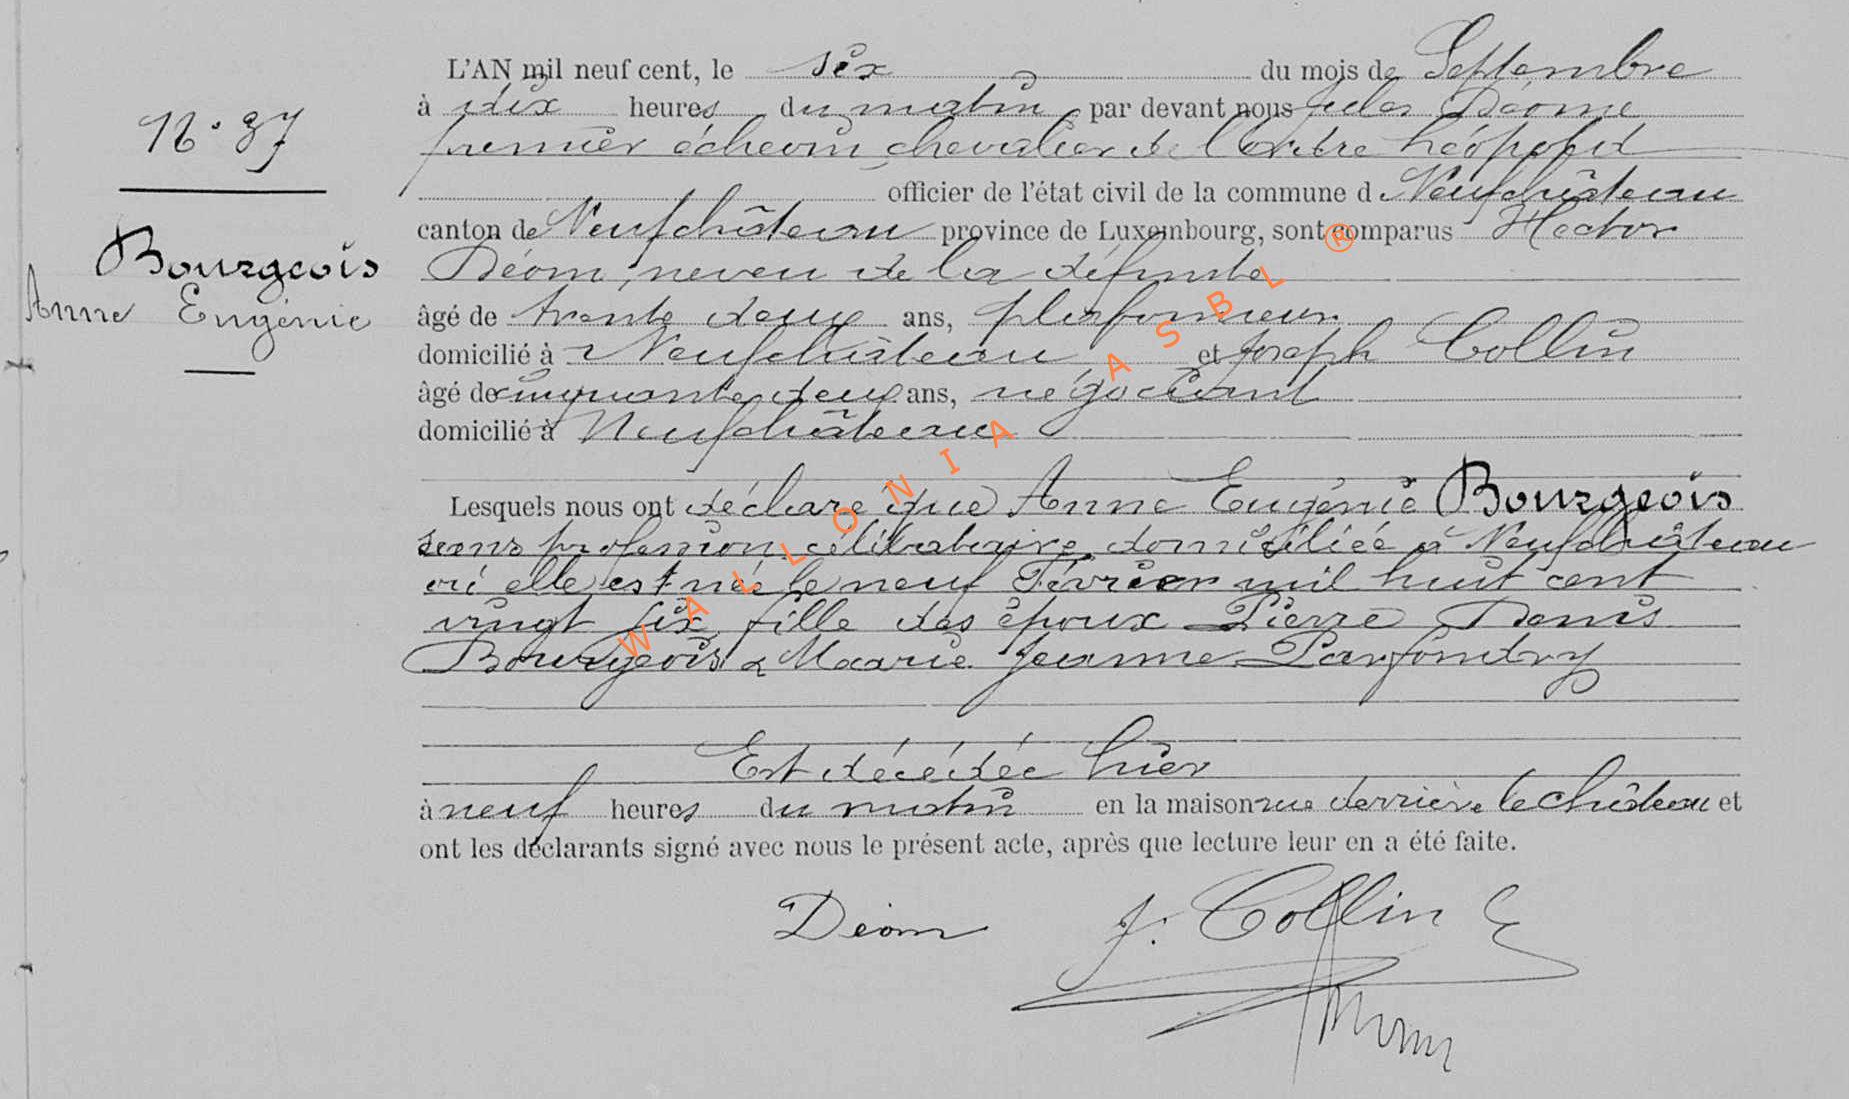 L'AN mil neuf cent, le six du mois de Septembre
à dix heures du matin par devant nous Jules Déome
premier échevin, chevalier de l'ordre Léopold
officier de l'état civil de la commune d Neufchâteau
canton de Neufchâteau province de Luxembourg, sont comparus Hector
Déom, neveu de la défunte
âgé de trente deux ans, plafonneur
domicilié à Neufchâteau et Joseph Collin
âgé de cinquante deux ans, négociant
domicilié à Neufchâteau
N° 37
Bourgeois
Anne Eugénie
Lesquels nous ont déclaré que Anne Eugénie Bourgeois
sans profession, célibataire, domiciliée à Neufchâteau
où elle est née le neuf Février mil huit cent
vingt six, fille des époux Pierre Denis
Bourgeois & Marie Jeanne Parfondry
Est décédée hier
à neuf heures du matin en la maison rue derrière le château et
ont les déclarants signé avec nous le présent acte, après que lecture leur en a été faite.
Déom J. Collin
WALLONIA ASBL ®